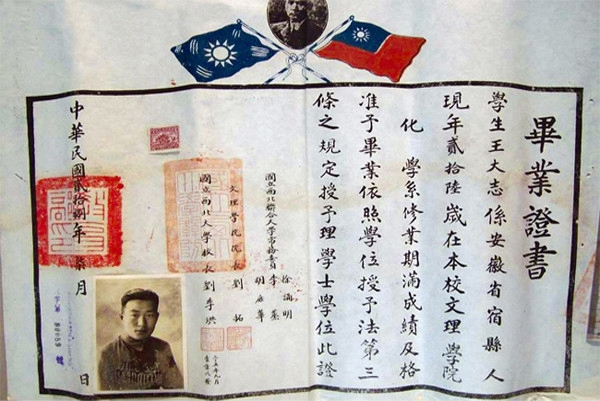 畢業證書
學生王大志係安徽省宿縣人
現年貳拾陸歲在本校文理學院
化學系修業期滿成績及格
准予畢業依照學位授予法第三
條之規定授予理學士學位此證
國立西北聯合大學常務委員
徐誦明
李蒸
胡庶華
文理學院院長劉拓
國立西北大學校長劉季洪
中華民國貳拾捌年柒月 日